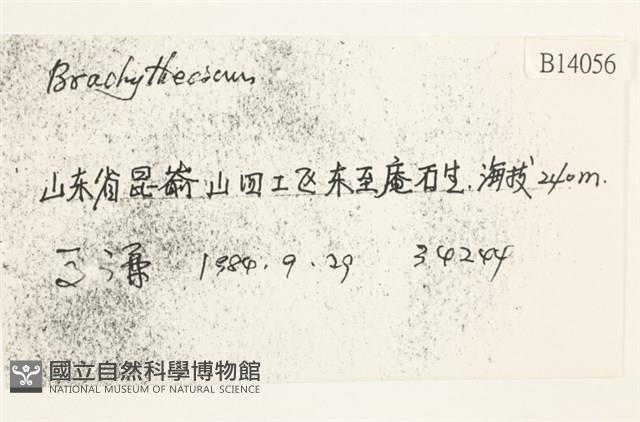 Brachythecium
B14056
山东省昆嵛山四工区东至庵石生.海拔240m.
1984.9.29 34244
國立自然科學博物館
NATIONAL MUSEUM OF NATURAL SCIENCE